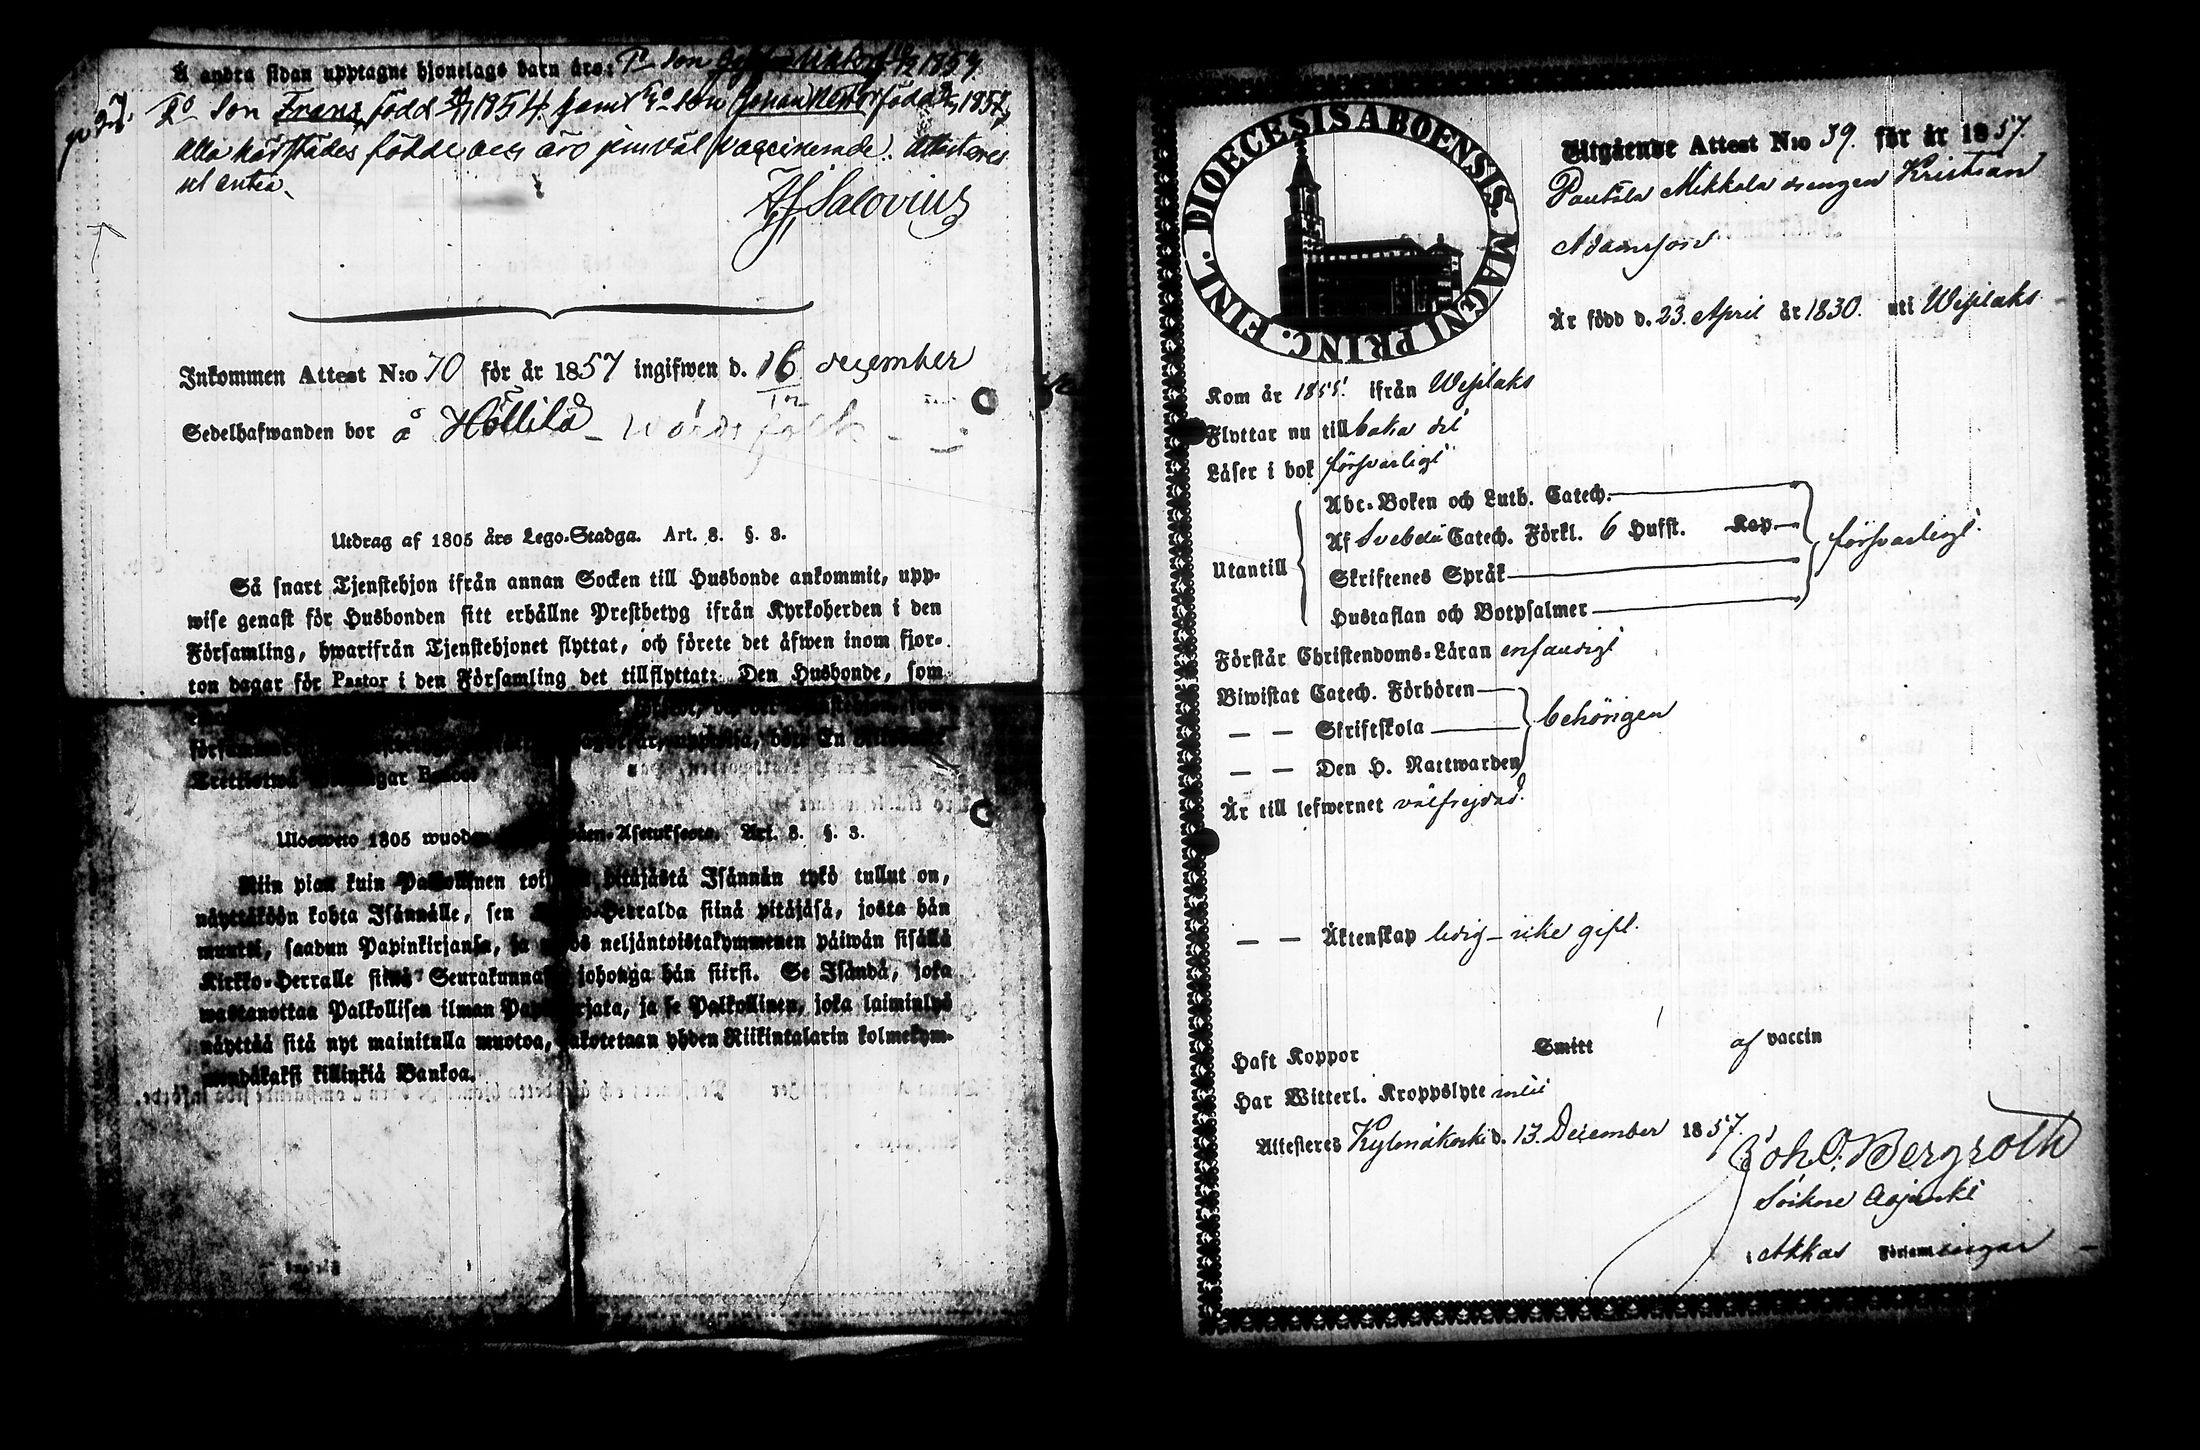 Å andra sidan upptagne hjonelags barn äro: 1o Son
2o Son Frans, född 1854. samt 3o Son Johan Nestor född 1857,
alla härstädes födde och äro jemväl vaccinerade. Attesteras
ut antea.
Salovius
Inkommen Attest N:o 70 för år 1857 ingifwen d. 16 december
Sedelhafwanden bor å Höllilä
Utdrag af 1805 års Lego-Stadga. Art. 3. §. 3.
Så snart Tjenstehjon ifrån annan Socken till Husbonde ankommit, upp-
wise genast för Husbonden sitt erhållne Prestbetyg ifrån Kyrkoherden i den
Församling, hwarifrån Tjenstehjonet flyttat, och förete det äfwen inom fjor-
ton dagar för Pastor i den Församling det tillflyttat: Den Husbonde, som
Bankoa
Ulosweto 1805 wuoden Asetuksesta. Art. 3. §. 3.
Niin pian kuin Palkollinen toisesta pitäjästä Isännän tykö tullut on,
näyttäköön kohta Isännälle, sen Kirkko-Herralda siinä pitäjäsä, josta hän
muutti, saadun Papinkirjansa, ja myös neljäntoistakymmenen päiwän sisällä
Kirkko-Herralle siinä Seurakunnasa johonga hän siirsi. Se Isändä, joka
wastanottaa Palkollisen ilman Papinkirjata, ja se Palkollinen, joka laiminlyö
näyttää sitä nyt mainitulla muotoa, sakotetaan yhden Riikintalarin kolmekym-
mendäkaksi killinkiä Bankoa.
DIOECESIS ABOENSIS. MAGNI PRINC. FINL.
Utgående Attest N:o 39. för år 1857.
Pautila Mikkola drengen Kristian
Adamsson
Är född d. 23. April år 1830. uti Wesilaks
Kom år 1855. ifrån Wesilaks
Flyttar nu tillbaka dit
Läser i bok försvarligt
Utantill
Abc-Boken och Luth. Catech.
Af Svebelii Catech. Förkl. 6 Hufst. Kap
Skriftenes Språk
Hustaflan och Botpsalmer
försvarligt.
Förstår Christendoms-Läran enfaldigt
Biwistat Catech. Förhören
— — Skriftskola
— — Den H. Nattwarden
behörigen
Är till lefwernet välfrejdad.
— — Äktenskap ledig – icke gift.
Haft Koppor Smitt af vaccin
Har Witterl. Kroppslyte intet
Attesteras Kylmäkoski d. 13. December 1857.
Joh. O. Bergroth
Akkas Församlingar